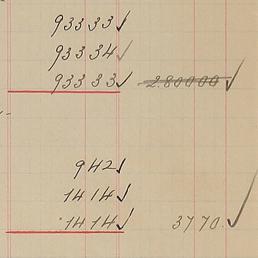 93333✓
93334✓
93333✓ 280000✓
942✓
1414✓
1414✓ 3770.✓